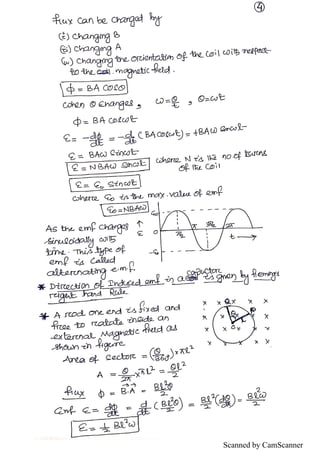 ④
flux can be changed by
(i) changing B
(ii) changing A
(iii) changing the orientation of the coil with respect
to the magnetic field.
ϕ = BA cosθ
when θ changes, ω = θ/t, θ=ωt
ϕ = BA cosωt
ε = -dϕ/dt = -d/dt (BA cosωt) = +BAω sinωt
ε = BAω sinωt
ε = NBAω sinωt where N is the no of turns
of the coil
ε = ε₀ sinωt
where ε₀ is the max. value of emf
ε₀ = NBAω
As the emf changes
sinusoidally with
time. This type of
emf is called
alternating e.m.f.
ε₀
ε 0 π/2 π 3π/2 2π
t →
-ε₀
* Direction of Induced emf in a conductor is given by fleming's
right hand Rule
* A rod one end is fixed and
free to rotate inside an
external Magnetic field as
shown in figure
Area of sector = (θ/360) × πl²
A = θ/2π × πl² = θl²/2
flux ϕ = B.A = Bl²θ/2
emf ε = dϕ/dt = d/dt (Bl²θ/2) = Bl²/2 (dθ/dt) = Bl²ω/2
ε = ½ Bl²ω
Scanned by CamScanner